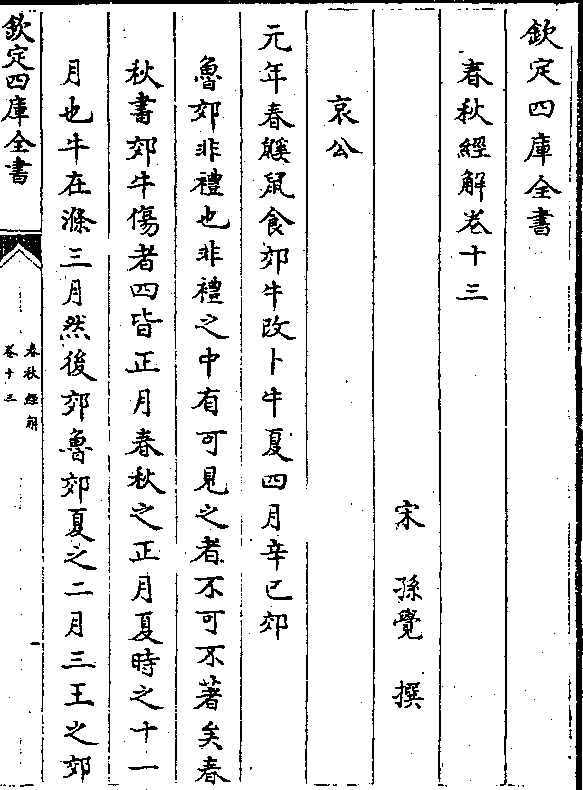 欽定四庫全書
春秋經解卷十三
宋　孫覺　撰
哀公
元年春鼷鼠食郊牛改卜牛夏四月辛巳郊
魯郊非禮也非禮之中有可見之者不可不著矣春
秋書郊牛傷者四皆正月春秋之正月夏時之十一
月也牛在滌三月然後郊魯郊夏之二月三王之郊
欽定四庫全書
春秋經解
卷十三